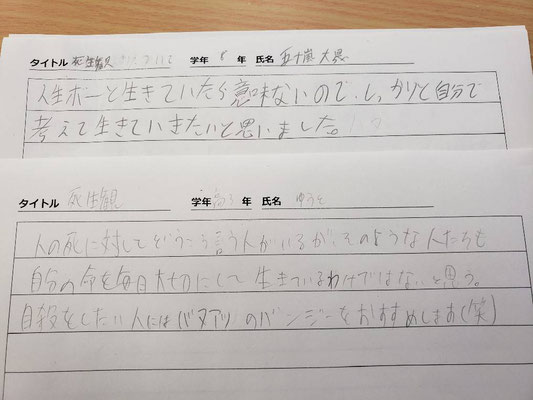 タイトル 死生観について 学年 8 年 氏名 五十嵐 大晃
人生ボーと生きていたら意味ないので、しっかりと自分で
考えて生きていきたいと思いました。
タイトル 死生観 学年 高3 年 氏名 ゆうと
人の死に対してどうこう言う人がいるが、そのような人たちも
自分の命を毎日大切にして生きているわけではないと思う。
自殺をしたい人にはバヌアツのバンジーをおすすめします(笑)